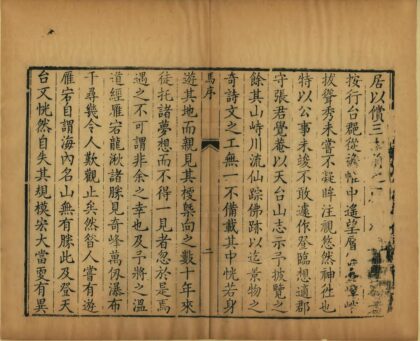 居以償三
按行台郡從帖中遙望層
拔聳秀未嘗不凝眸注視悠然神徃也
特以公事未竣不敢遽作登臨想適郡
守張君覺菴以天台山志示予披覽之
餘其山峙川流仙踪佛跡以迄景物之
奇詩文之工無一不備載其中恍若身
馬序
二
遊其地而親見其槩矣向之數十年來
徒托諸夢想而不得一見者忽於是焉
遇之不可謂非余之幸也及予將之溫
道經雁宕龍湫諸勝見奇峰萬仞瀑布
千尋幾令人歎觀止矣然昔人嘗有遊
雁宕自謂海內名山無有勝此及登天
台又恍然自失其規模宏大當更有異